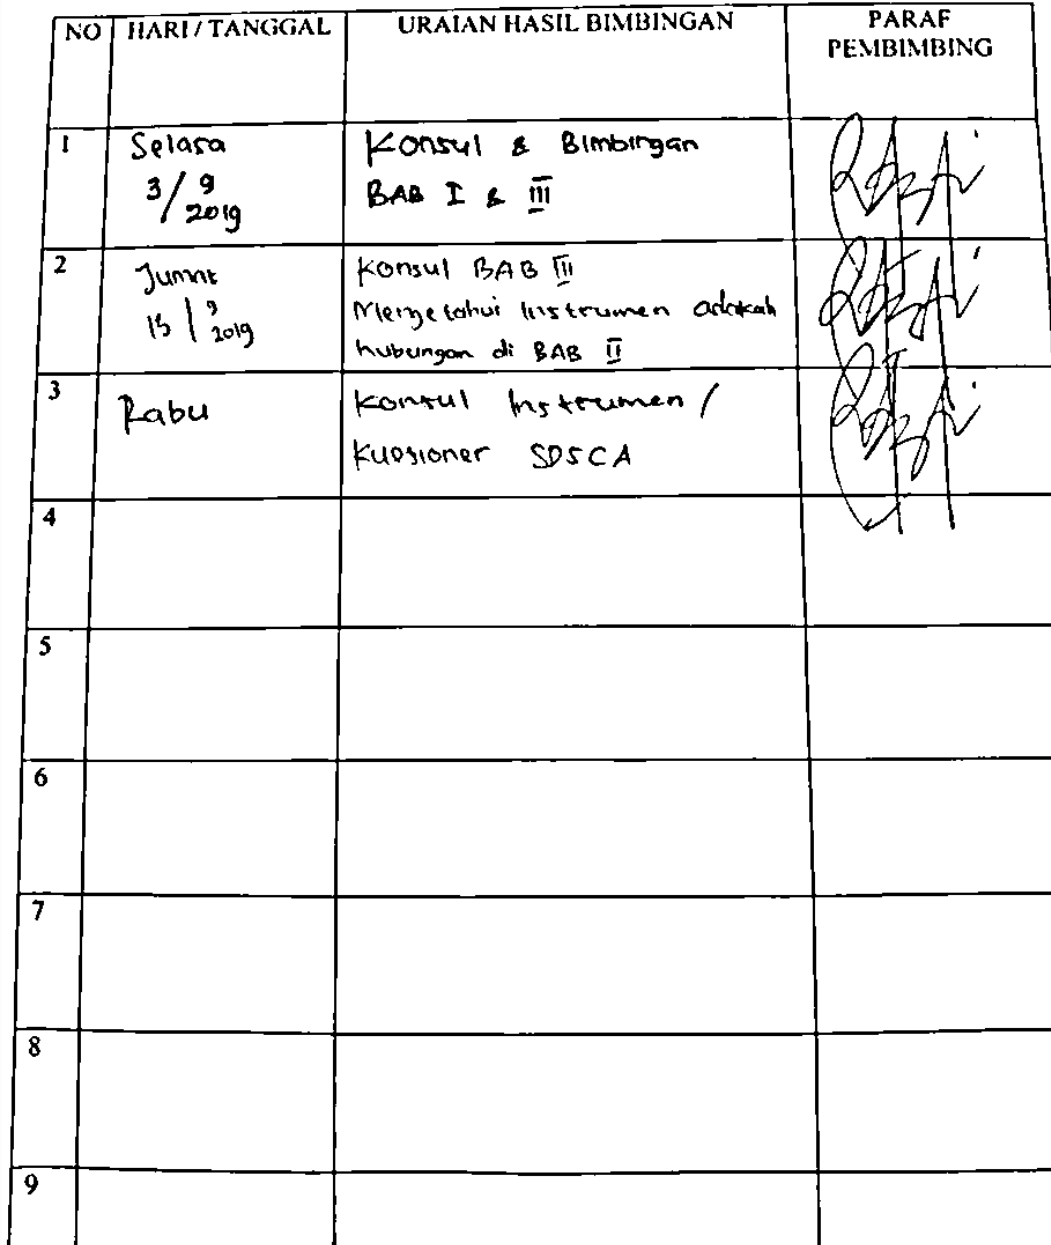 NO HARI / TANGGAL URAIAN HASIL BIMBINGAN PARAF
PEMBIMBING
1 Selasa Konsul & Bimbingan
3/9 BAB I & III
2019
2 Jumat Konsul BAB III
15 / 9 Mengetahui Instrumen adakah
2019 hubungan di BAB II
3 Rabu Konsul Instrumen /
Kuosioner SDSCA
4
5
6
7
8
9